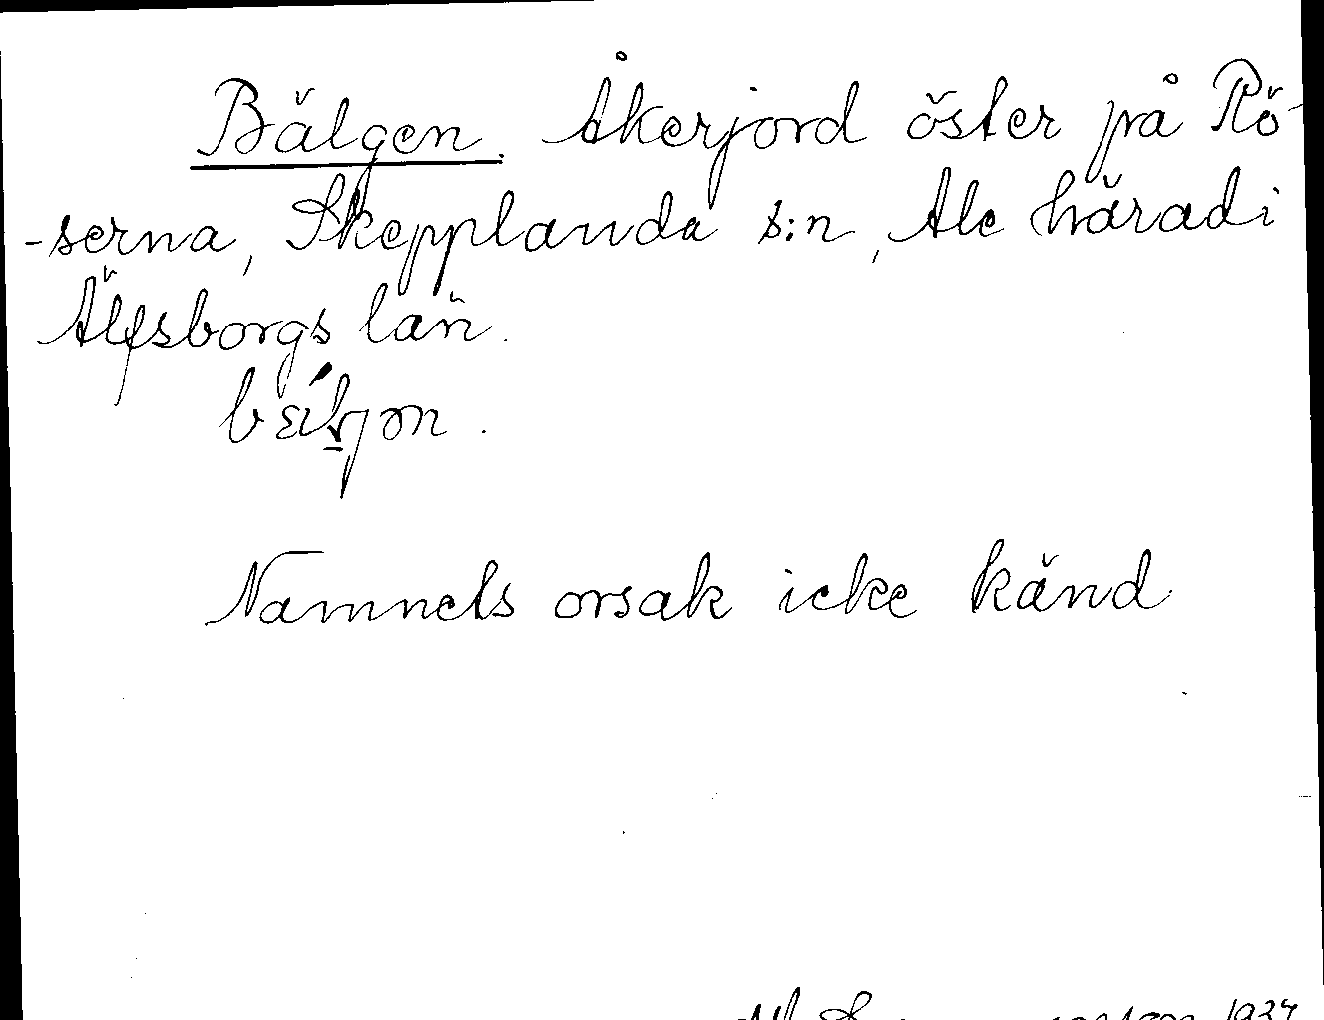 Bälgen. Åkerjord öster på Rö-
-serna, Skepplanda s:n, Ale härad i
Älfsborgs län.
Namnets orsak icke känd
1934